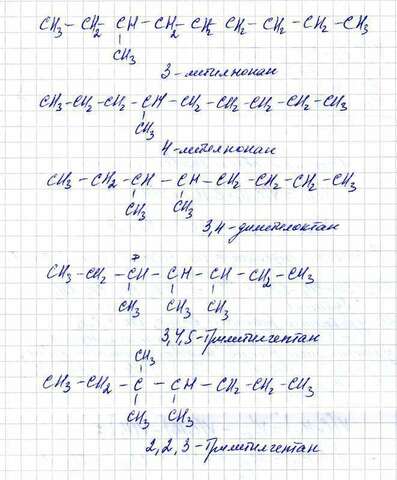 CH₃ – CH₂ – CH – CH₂ – CH₂ – CH₂ – CH₂ – CH₂ – CH₃
CH₃
3-метилнонан
CH₃ – CH₂ – CH₂ – CH – CH₂ – CH₂ – CH₂ – CH₂ – CH₃
CH₃
4-метилнонан
CH₃ – CH₂ – CH – CH – CH₂ – CH₂ – CH₂ – CH₃
CH₃ CH₃
3,4-диметилоктан
CH₃ – CH₂ – CH – CH – CH – CH₂ – CH₃
CH₃ CH₃ CH₃
3,4,5-Триметилгептан
CH₃
CH₃ – CH₂ – C – CH – CH₂ – CH₂ – CH₃
CH₃ CH₃
2,2,3-Триметилгептан